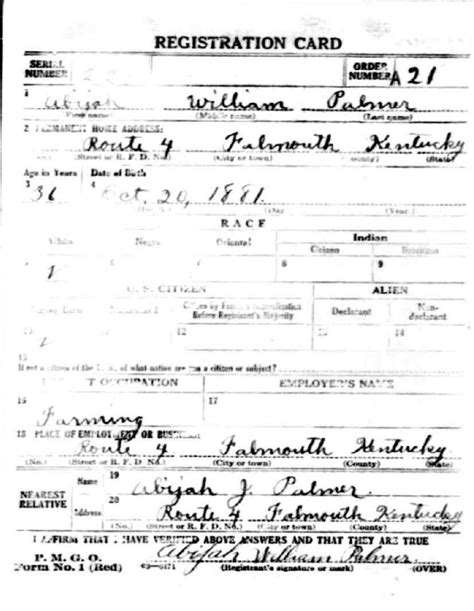 REGISTRATION CARD
SERIAL NUMBER ORDER NUMBER A 21
1 Abijah William Palmer
(First name) (Middle name) (Last name)
2 PERMANENT HOME ADDRESS:
Route 4 Falmouth Kentucky
(Street or R. F. D. No.) (City or town) (County) (State)
Age in Years Date of Birth
3 36 4 Oct. 20, 1881.
(Day) (Year)
RACE
White Negro Oriental Indian
Citizen
8 9
U. S. CITIZEN ALIEN
Before Registrant's Majority Declarant Non-declarant
12 13 14
15
If not a citizen of the U. S., of what nation are you a citizen or subject?
T OCCUPATION EMPLOYER'S NAME
16 17
Farming
18 PLACE OF EMPLOYMENT OR BUSINESS:
Route 4 Falmouth Kentucky
(No.) (Street or R. F. D. No.) (City or town) (County) (State)
NEAREST RELATIVE
Name 19 Abijah J. Palmer
Address 20 Route 4 Falmouth Kentucky
(No.) (Street or R. F. D. No.) (City or town) (County) (State)
I AFFIRM THAT I HAVE VERIFIED ABOVE ANSWERS AND THAT THEY ARE TRUE
P. M. G. O.
Form No. 1 (Red) Abijah William Palmer
(Registrant's signature or mark) (OVER)